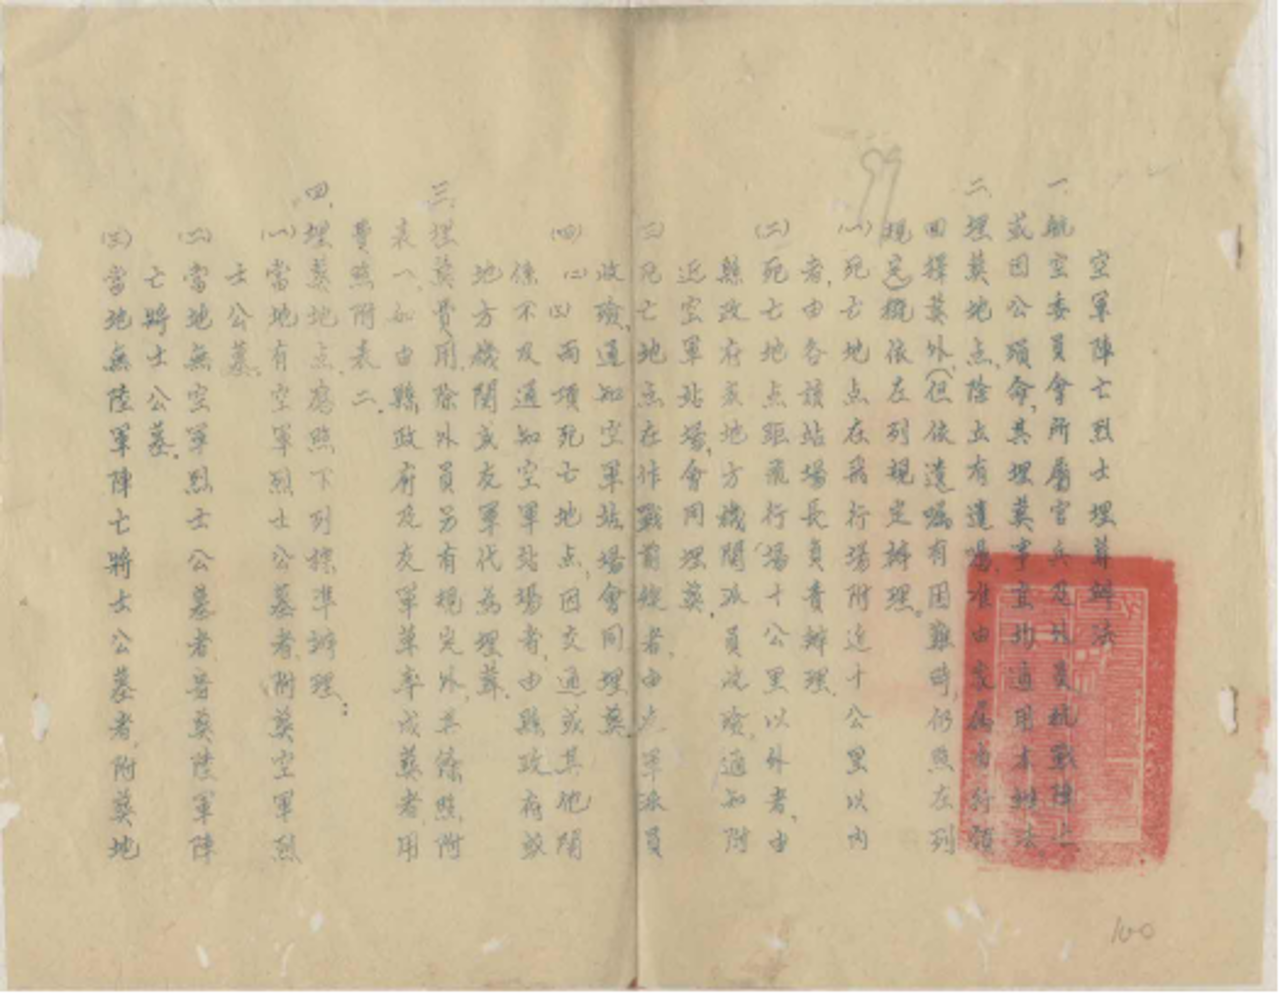 空軍陣亡烈士埋葬辦法
一、航空委員會所屬官兵及外員抗戰陣亡
或因公殞命,其埋葬事宜均適用本辦法
二、埋葬地点,除立有遺囑,准由家屬自行領
回擇葬外,(但依遺囑有困難時,仍照左列
規定)概依左列規定辦理。
㈠死亡地点在飛行場附近十公里以內
者,由各該站場長負責辦理.
㈡死亡地点距飛行場十公里以外者,由
縣政府或地方機關派員收殮,通知附
近空軍站場,會同埋葬.
㈢死亡地点在作戰前線者,由友軍派員
收殮,通知空軍站場會同埋葬
㈣㈡㈢兩項死亡地点,因交通或其他關
係不及通知空軍站場者,由縣政府或
地方機關或友軍代為埋葬.
三、埋葬費用,除外員另有規定外,其餘照附
表一、如由縣政府及友軍草率成葬者,用
費照附表二.
四、埋葬地点應照下列標準辦理:
㈠當地有空軍烈士公墓者,附葬空軍烈
士公墓.
㈡當地無空軍烈士公墓者,葬陸軍陣
亡將士公墓.
㈢當地無陸軍陣亡將士公墓者,附葬地
99
100